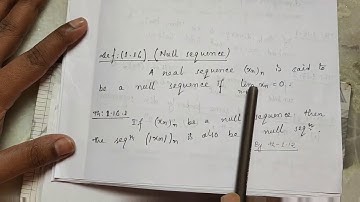 Def: (2.1.6) (Null sequence)
A real sequence (xn)n is said to
be a null sequence if lim xn = 0.
Th: 2.1.6.1
If (xn)n be a null sequence, then
the seqn (|xn|)n is also be null seqn.